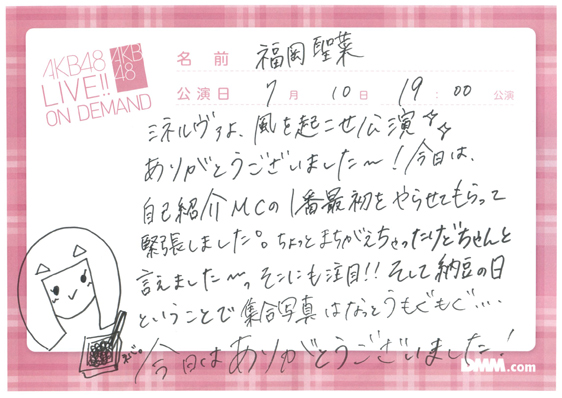 AKB48
LIVE!!
ON DEMAND
AKB
48
名前 福岡聖菜
公演日 7月10日 19:00公演
ミネルヴァよ、風を起こせ公演
ありがとうございました〜!今日は、
自己紹介MCの1番最初をやらせてもらって
緊張しました。ちょっとまちがえちゃったけどちゃんと
言えました〜っそこにも注目!!そして納豆の日
ということで集合写真はなっとうもぐもぐ...
今日はありがとうございました!
DMM.com